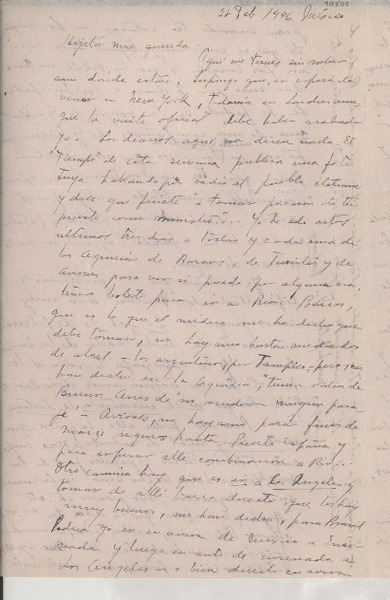 22 Feb / 1946 México
Hijita muy querida
¡Aquí me tienes sin saber
aun dónde estás. Supongo que, en espera de
irnos a New York, todavía en Londres, aunque
que la visita oficial debe haber acabado
ya. Los diarios aquí no dicen nada. El
"Tiempo" de esta semana publica una foto
tuya hablando por radio al pueblo chileno
y dice que fuiste a tomar posesión de tu
puesto como ministro". Yo he ido estos
últimos tres días a todas y cada una de
las agencias de Barcos, de Turistas y de
aviones para ver si puedo por alguna ob-
tener boleto para ir a Rio. Barcos,
que es lo que el médico me ha dicho que
debo tomar, no hay sino hasta mediados
de abril - los argentinos, por Tampico - pero, me
han dicho en la agencia, "tienen orden de
Buenos Aires de no vender ningún pasa-
je". Aviones, no hay sino para fines de
marzo seguros hasta Puerto España y
para esperar allí combinación a Rio.
Otro camino hay que es ir a Los Angeles y
tomar de allí barco directo, que los hay
muy buenos, me han dicho, para Brasil
Podría yo ir en avión de México a Ense-
nada y luego en auto de Ensenada a
Los Angeles - o bien directo en avión